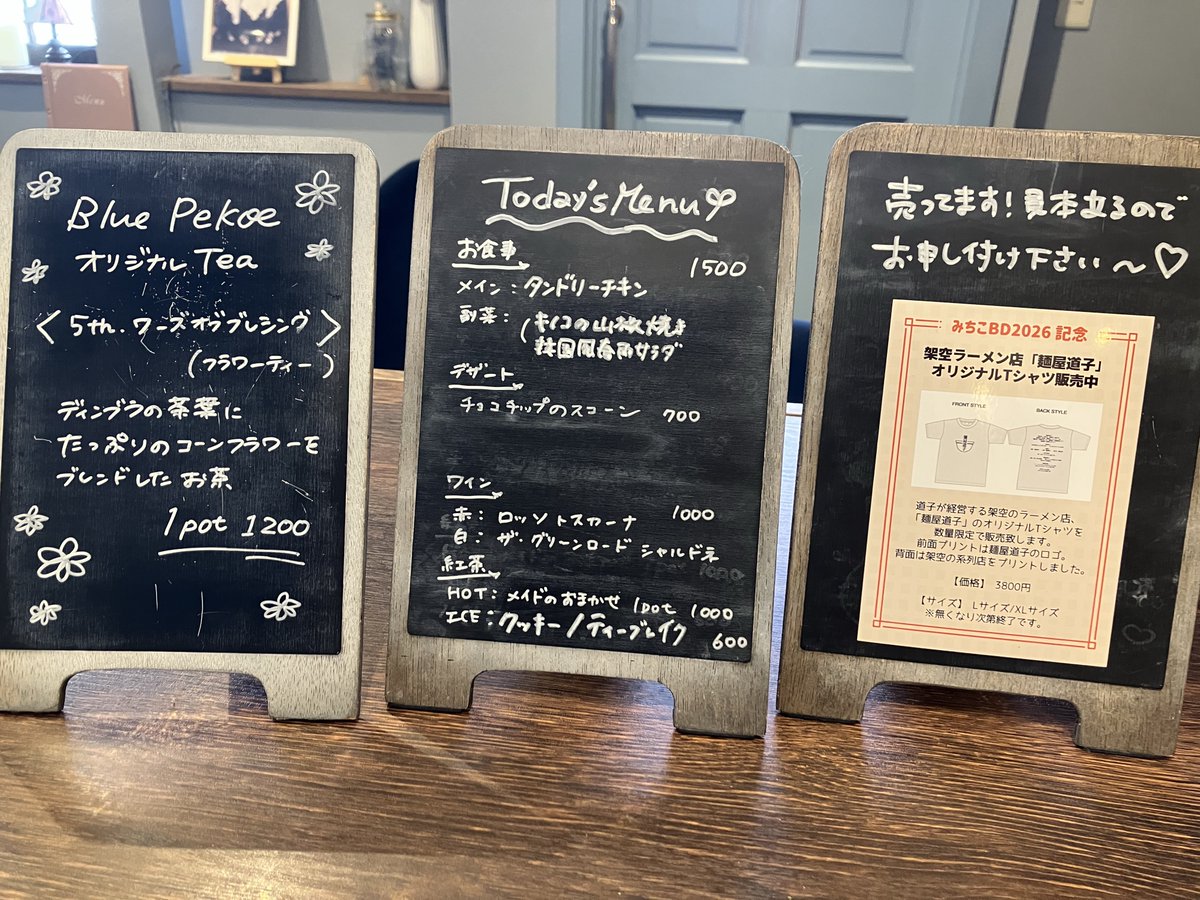 Menu
Blue Pekoe
オリジナル Tea
〈 5th. ワーズオブブレシング 〉
(フラワーティー)
ディンブラの茶葉に
たっぷりのコーンフラワーを
ブレンドしたお茶
1pot 1200
Today's Menu
お食事
1500
メイン：タンドリーチキン
副菜：(キノコの山椒焼き
韓国風春雨サラダ
デザート
チョコチップのスコーン 700
ワイン
赤：ロッソトスカーナ 1000
白：ザ・グリーンロード シャルドネ
1000
紅茶
HOT：メイドのおまかせ 1pot 1000
ICE：クッキー/ティーブレイク 600
売ってます!見本あるので
お申し付け下さい〜♡
みちこBD2026 記念
架空ラーメン店「麺屋道子」
オリジナルTシャツ販売中
FRONT STYLE
BACK STYLE
道子が経営する架空のラーメン店、
「麺屋道子」のオリジナルTシャツを
数量限定で販売致します。
前面プリントは麺屋道子のロゴ。
背面は架空の系列店をプリントしました。
【価格】 3800円
【サイズ】 Lサイズ/XLサイズ
※無くなり次第終了です。